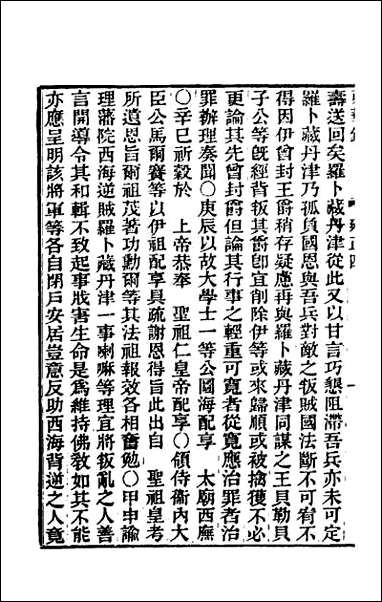 壽送回矣羅卜藏丹津從此又以甘言巧懇阻滯吾兵亦未可定
羅卜藏丹津乃孤負國恩與吾兵對敵之叛賊國法斷不可宥不
得因伊曾封王爵稍存疑應再與羅卜藏丹津同謀之王貝勒貝
子公等旣經背叛其爵卽宜削除伊等或來歸順或被擒獲不必
更論其先曾封爵但論其行事之輕重可寬者從寬應治罪者治
罪辦理奏聞〇庚辰以故大學士一等公圖海配享 太廟西廡
〇辛巳祈穀於 上帝恭奉 聖祖仁皇帝配享〇領侍衞內大
臣公馬爾賽等以伊祖配享具疏謝恩得旨此出自 聖祖皇考
所遺恩旨爾祖茂著功勳爾等其法祖報效各相奮勉〇甲申諭
理藩院西海羅卜藏丹津一事喇嘛等理宜將叛亂之人善
言開導令其和輯不致起事戕害生命是爲維持佛敎如其不能
亦應呈明該將軍等各自閉戶安居豈意反助西海背逆之人竟